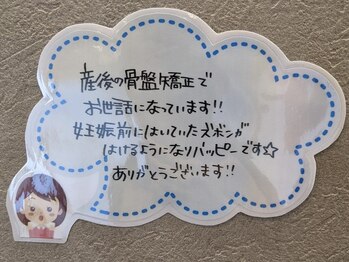 産後の骨盤矯正で
お世話になっています!!
妊娠前にはいていたズボンが
はけるようになりハッピーです☆
ありがとうございます!!